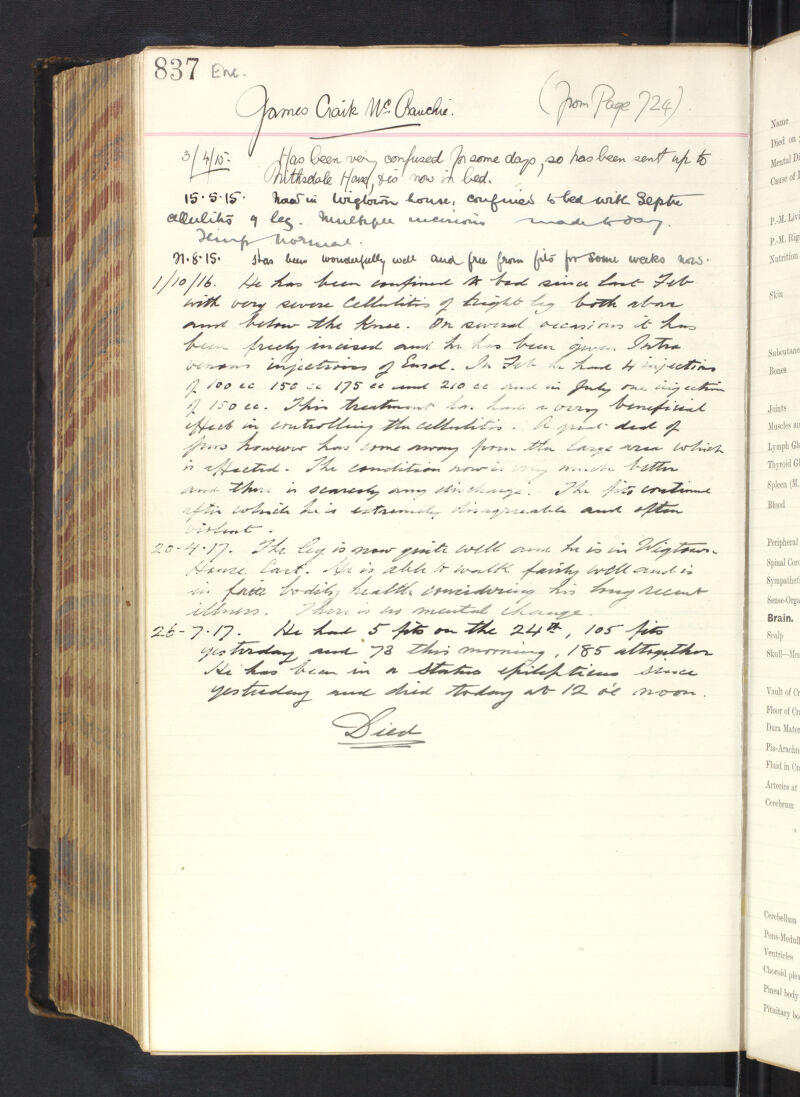 837 Ene.
James Craik McCranchie. (from Page 724)
3/4/15. Has been very confused for some days, so has been sent up to
Nithsdale House, & is now in bed.
15.5.15. Now in Wigtown house, confined to bed with Septic
cellulitis of leg. Multiple incisions made to day.
Temp normal.
.8.15. Has been wonderfully well and free from fits for some weeks now.
1/10/16. He has been confined to bed since last Feb
with very severe Cellulitis of right leg both above
and below the knee. On several occasions it has
been freely incised and he has been given Intra
venous injections of Eusol. In Feb he had 4 injections
of 100 cc 150 cc 175 cc and 210 cc and in July one injection
of 150 cc. This treatment has had a very beneficial
effect in controlling the cellulitis. A great deal of
pus however has come away from the large area which
is affected. The condition now is very much better
and there is scarcely any discharge. The fits continue
after which he is extremely disagreeable and often
violent.
20-4-17. The leg is now quite well and he is in Wigtown
House East. He is able to walk fairly well and is
in fair bodily health considering his long recent
illness. There is no mental change.
26-7-17. He had 5 fits on the 24th, 105 fits
yesterday and 73 this morning, 185 altogether
He has been in a status epilepticus since
yesterday and died today at 12 o'c noon.
Died
Name
Died on
Mental Di
Cause of
P.-M. Livi
P.-M. Rig
Nutrition
Skin
Subcutane
Bones
Joints
Muscles an
Lymph Gl
Thyroid Gl
Spleen (M.
Blood
Peripheral
Spinal Cor
Sympathet
Sense-Orga
Brain.
Scalp
Skull—Mea
Vault of Cr
Floor of Cra
Dura Mater
Pia-Arachn
Fluid in Cr
Arteries at
Cerebrum
Cerebellum
Pons-Medull
Ventricles
Choroid plex
Pineal body
Pituitary bo